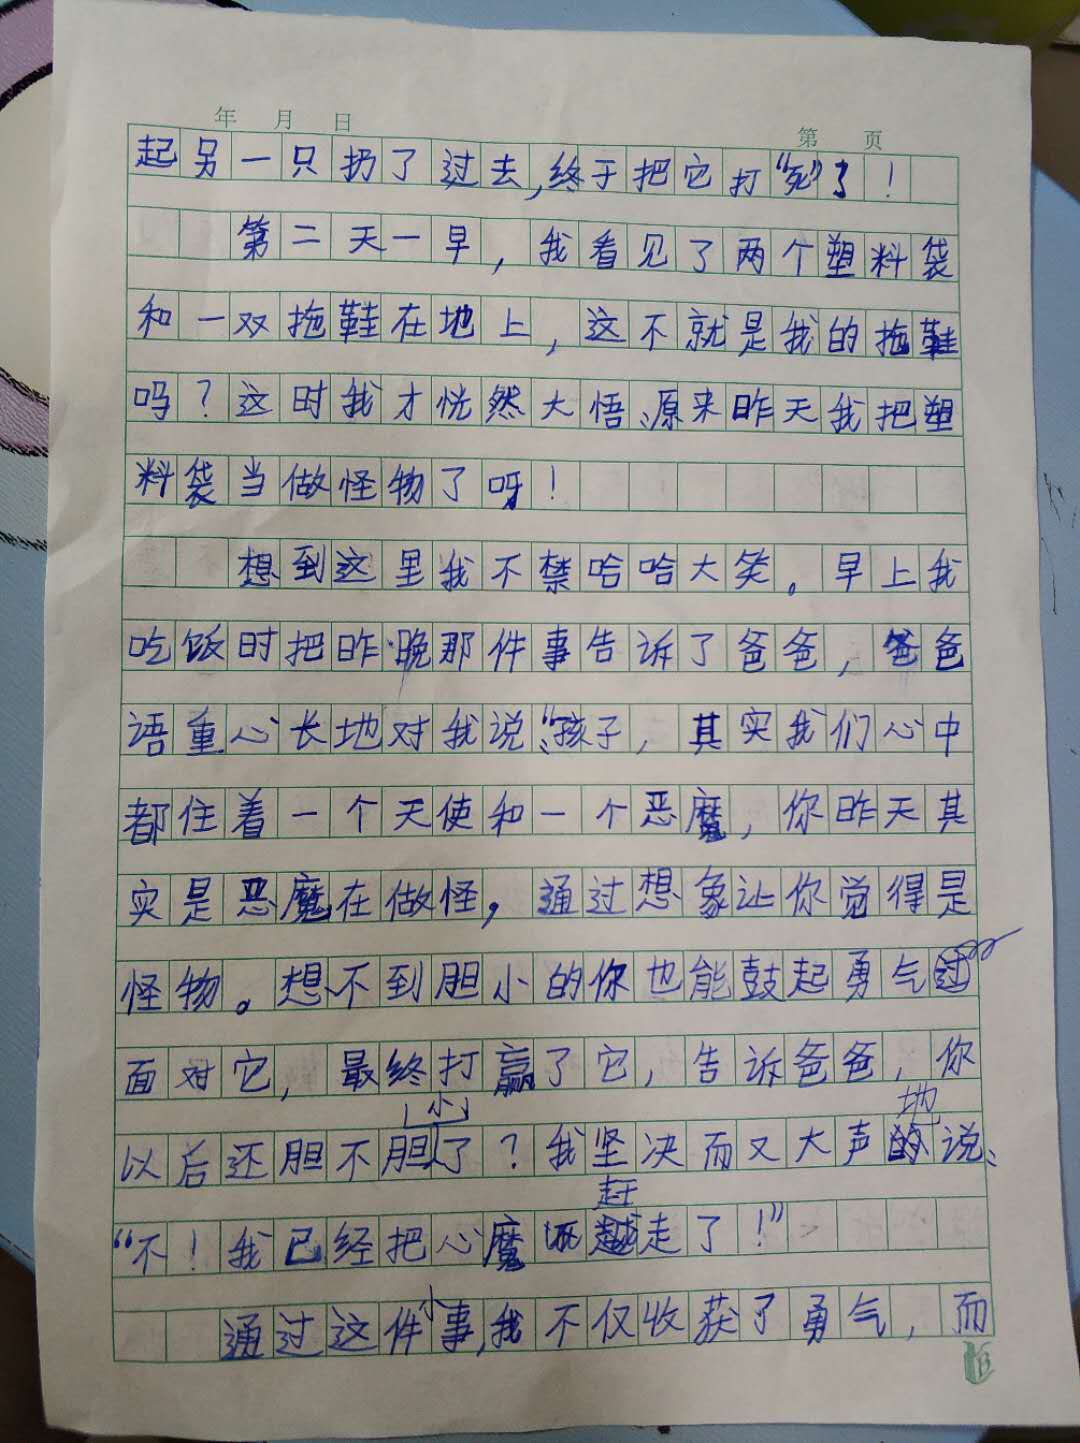 年 月 日
第 页
起另一只扔了过去,终于把它打“死”了!
第二天一早,我看见了两个塑料袋
和一双拖鞋在地上,这不就是我的拖鞋
吗?这时我才恍然大悟、原来昨天我把塑
料袋当做怪物了呀!
想到这里我不禁哈哈大笑。早上我
吃饭时把昨晚那件事告诉了爸爸,爸爸
语重心长地对我说:“孩子,其实我们心中
都住着一个天使和一个恶魔,你昨天其
实是恶魔在做怪,通过想象让你觉得是
怪物。想不到胆小的你也能鼓起勇气
面对它,最终打赢了它,告诉爸爸,你
以后还胆不胆小了?我坚决而又大声地说、
“不!我已经把心魔赶走了!”
通过这件小事,我不仅收获了勇气,而